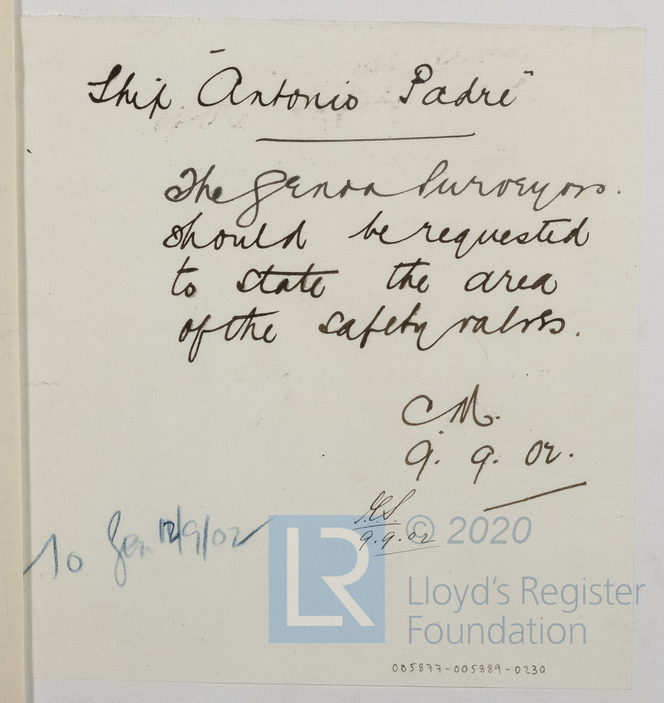 Ship "Antonio Padre"
The Genoa Surveyors.
should be requested
to state the area
of the safety valves.
C.M.
9. 9. 02.
H.S.
9.9.02
To Gen 12/9/02
LR
© 2020
Lloyd's Register
Foundation
005877-005889-0230